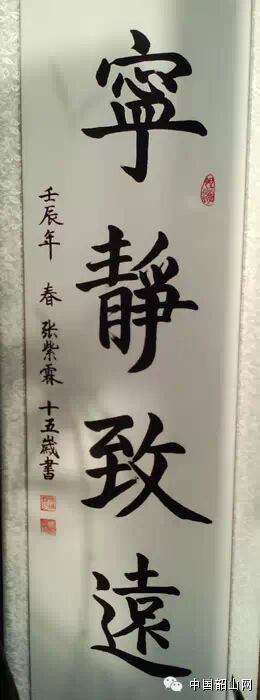 寧靜致遠
壬辰年 春 张紫霖 十五歲書
中国韶山网